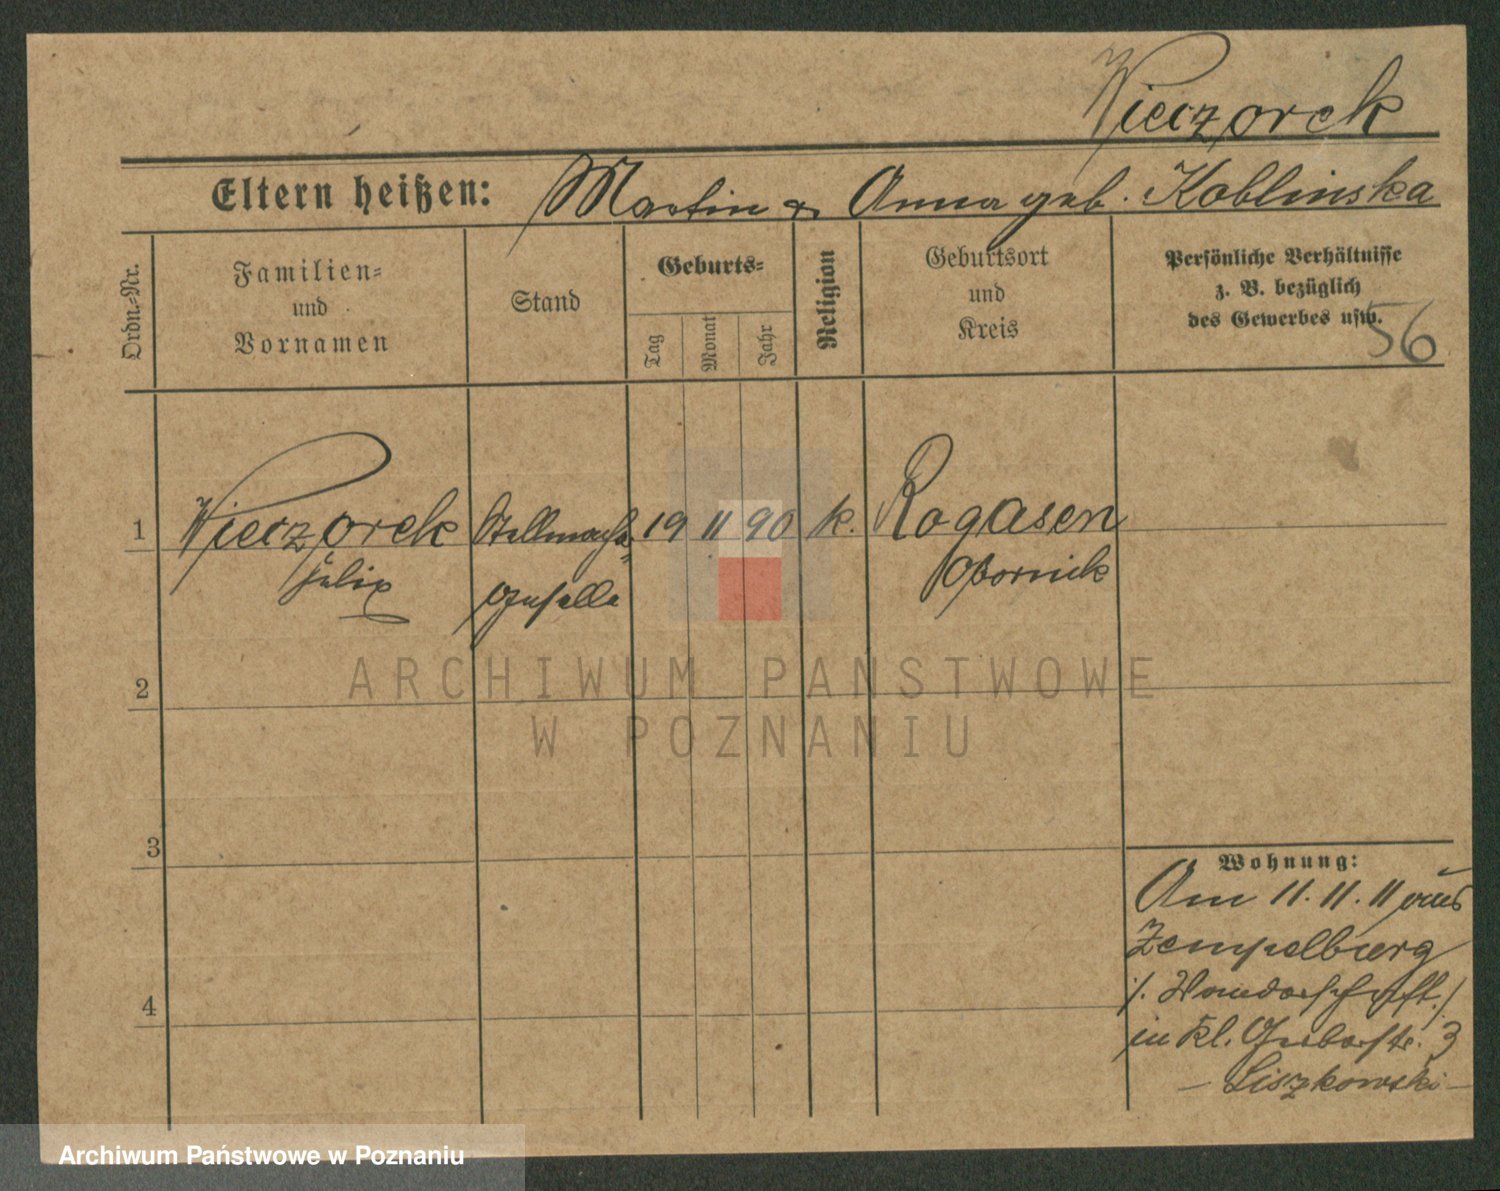 Wieczorek
Eltern heißen: Martin & Anna geb. Koblinska
Ordn.-Nr.
Familien-
und
Vornamen
Stand
Geburts-
Tag
Monat
Jahr
Religion
Geburtsort
und
Kreis
Persönliche Verhältnisse
z. B. bezüglich
des Gewerbes usw.
56
1 Wieczorek Stellmach 19 11 90 k. Rogasen
Felix geselle Obornick
2
3
4
Wohnung:
Am 11. 11. 11 aus
Zempelburg
/. Wanderschaft ./
in Kl. Gerberstr. 3
- Liszkowski -
ARCHIWUM PAŃSTWOWE
W POZNANIU
Archiwum Państwowe w Poznaniu